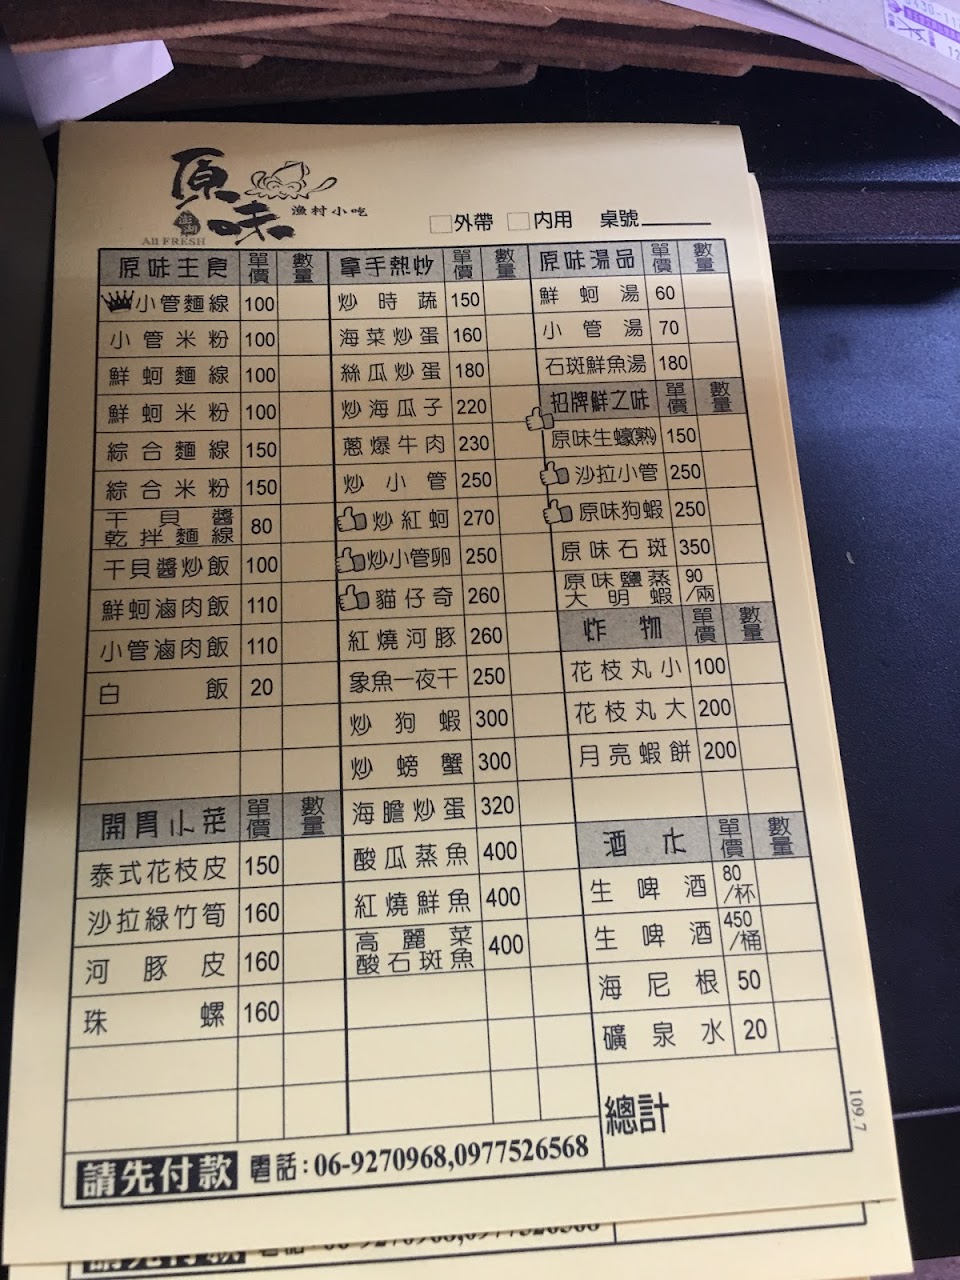 原味
澎湖
All FRESH
漁村小吃
□外帶 □內用 桌號
原味主食 單價 數量
小管麵線 100
小管米粉 100
鮮蚵麵線 100
鮮蚵米粉 100
綜合麵線 150
綜合米粉 150
干貝醬乾拌麵線 80
干貝醬炒飯 100
鮮蚵滷肉飯 110
小管滷肉飯 110
白飯 20
開胃小菜 單價 數量
泰式花枝皮 150
沙拉綠竹筍 160
河豚皮 160
珠螺 160
拿手熱炒 單價 數量
炒時蔬 150
海菜炒蛋 160
絲瓜炒蛋 180
炒海瓜子 220
蔥爆牛肉 230
炒小管 250
炒紅蚵 270
炒小管卵 250
貓仔奇 260
紅燒河豚 260
象魚一夜干 250
炒狗蝦 300
炒螃蟹 300
海膽炒蛋 320
酸瓜蒸魚 400
紅燒鮮魚 400
高麗菜酸石斑魚 400
原味湯品 單價 數量
鮮蚵湯 60
小管湯 70
石斑鮮魚湯 180
招牌鮮之味 單價 數量
原味生蠔(熟) 150
沙拉小管 250
原味狗蝦 250
原味石斑 350
原味鹽蒸大明蝦 90/兩
炸物 單價 數量
花枝丸小 100
花枝丸大 200
月亮蝦餅 200
酒水 單價 數量
生啤酒 80/杯
生啤酒 450/桶
海尼根 50
礦泉水 20
總計
請先付款 電話:06-9270968,0977526568
109.7